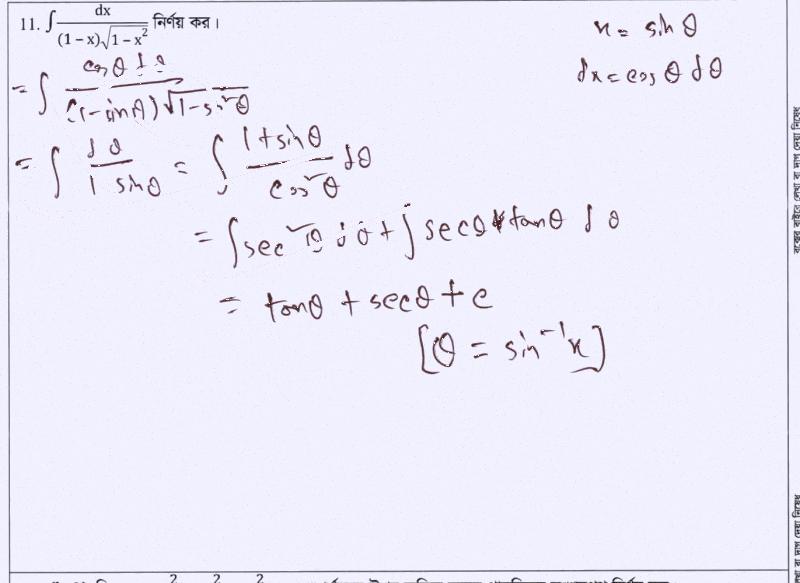 11. ∫ dx / (1−x)√1−x² নির্ণয় কর।
x = sin θ
dx = cos θ dθ
= ∫ cos θ dθ / (1−sinθ)√1−sin²θ
= ∫ dθ / 1 sinθ = ∫ 1+sinθ / cos²θ dθ
= ∫ sec²θ dθ + ∫ secθ tanθ dθ
= tanθ + secθ + c
[θ = sin⁻¹x]